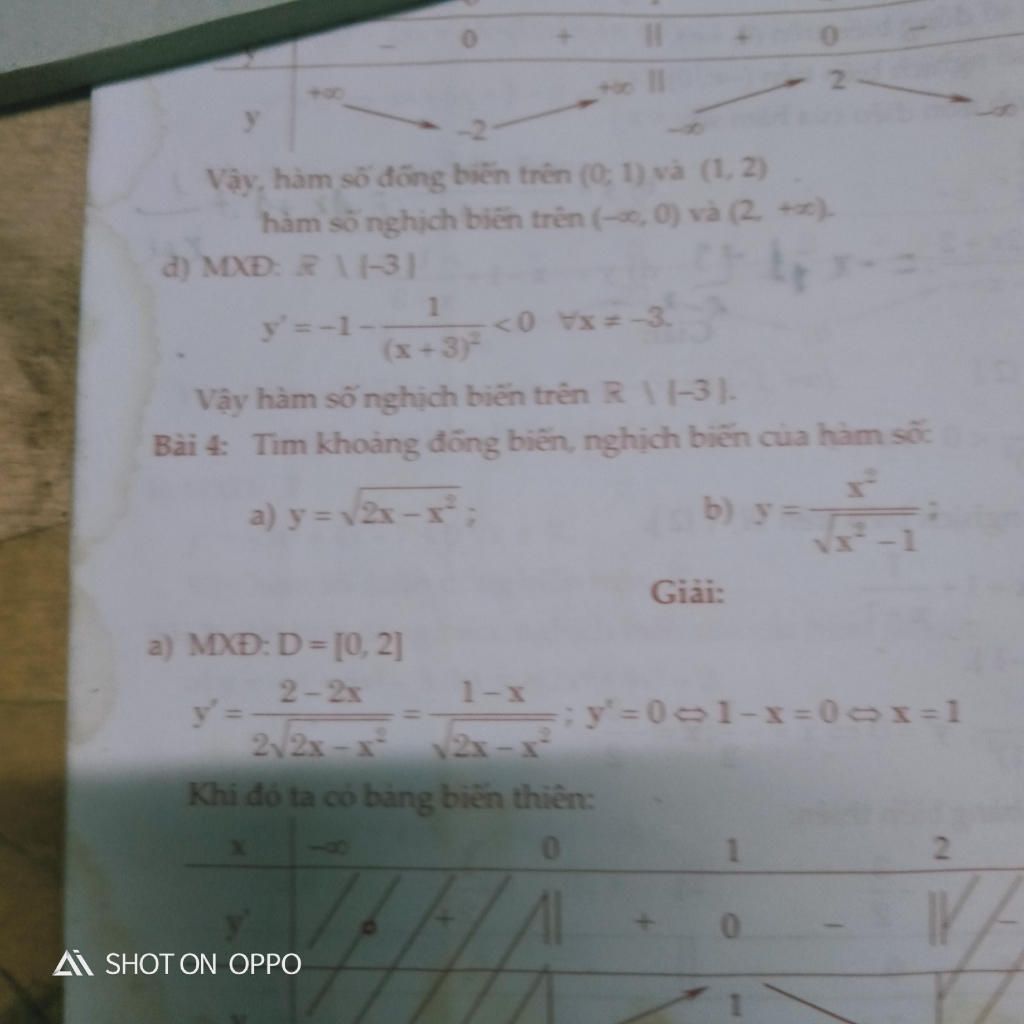 − 0 + || + 0 −
y +∞ −2 +∞ || −∞ 2 −∞
Vậy, hàm số đồng biến trên (0; 1) và (1, 2)
hàm số nghịch biến trên (−∞, 0) và (2, +∞).
d) MXĐ: ℝ \ {−3}
y' = −1 − 1/(x + 3)² < 0 ∀x ≠ −3.
Vậy hàm số nghịch biến trên ℝ \ {−3}.
Bài 4: Tìm khoảng đồng biến, nghịch biến của hàm số:
a) y = √(2x − x²) ; b) y = x²/√(x² − 1) ;
Giải:
a) MXĐ: D = [0, 2]
y' = (2 − 2x)/(2√(2x − x²)) = (1 − x)/√(2x − x²) ; y' = 0 ⇔ 1 − x = 0 ⇔ x = 1
Khi đó ta có bảng biến thiên:
x −∞ 0 1 2
y' + || + 0 − || −
y 1
SHOT ON OPPO